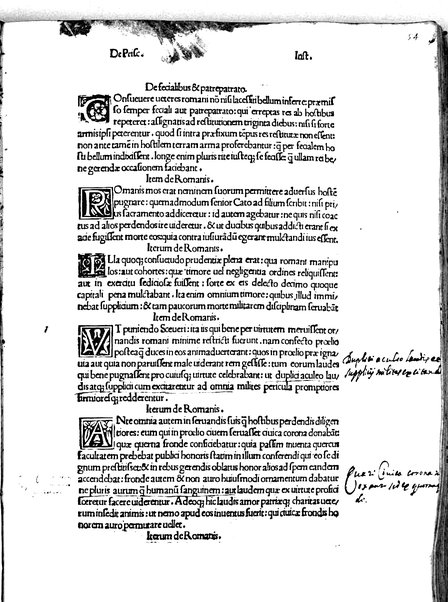 54
De Prisc. Inst.
De fecialibus & patrepatrato.
COnsueuere ueteres romani nõ nisi lacessiti bellum inferre: præmis
so semper feciali aut patrepatrato: qui erreptas res ab hostibus
repeteret: assignatis ad restitutionem triginta diebus: nisi si forte
armis ipsi peterentur. quod si intra præfixum tẽpus res restitutæ non essent:
non ante tamẽ in hostilem terram arma proferebantur: q̃ per fecialem ho
sti bellum indixissent. longe enim pluris rite iusteq; se fecisse q̃ ullam rei be/
ne gerendæ occasionem faciebant.
Item de Romanis.
ROmanis mos erat neminem suorum permittere aduersus hostẽ
pugnare: quemadmodum senior Cato ad filium scribit: nisi pri/
us sacramento addiceretur: id autem agebatur: ne quis nisi coac/
tus ad alios perdendos ire uideretur. & ut duobus quibus addicti erant is ex
acie fugissent morte eos quia contra iusiurãdũ egerant mulctandi ius essent.
Iterum de Romanis.
ILla quoq; consuetudo prudentiæ plena erat: qua romani manipu
los: aut cohortes: quæ timore uel negligentia ordines reliquissent:
aut in exercitu seditiose fuissent: forte ex eis delecto decimo quoque
capitali pena mulctabant. Ita enim omnium timore: quibus illud immi/
nebat supplicium: & tam paucorum morte militarem disciplinam seruabãt
Iterum de Romanis.
VT puniendo Sæueri: ita iis qui bene per uirtutem meruissent or/
nandis romani minime restricti fuerunt. nam confecto prœlio
posteaq̃ duces in eos animaduerterant: quos in prœlio præ igna/
uia aut quia non paruissent male uiderant rem gessisse: tum eorum laudes
qui bene pugnassent pro cuiusq; uirtute celebrabant: ut duplici aculeo lau/
dis atq; supplicii cum excitarentur ad omnia milites pericula promptiores
firmioresq; redderentur.
Iterum de Romanis.
ANte omnia autem in seruandis suis q̃ hostibus perdendis diligen
tiores: eum qui in prœlio ciuem seruasset ciuica corona donabãt
quæ querna fronde conficiebatur: quia passim inuenta quercus
facultatem prebebat publici honoris statim in illum conferendi qui eo se di
gnum prestitisset: & in rebus gerendis oblatus honor alios ad spem eandem
accendebat: fronde autem & non auro huiusmodi ornamentum dabatur
ne pluris aurum q̃ humanũ sanguinem: aut laudem quæ ex uirtute profici
sceretur facere uiderentur. Adeoq; hic laudis amor patriæq; charitas uete/
rum insedit animis: ut nemo apud eos inuentus fuerit: qui ciuicæ frondis ho
norem auro permutare uellet.
Iterum de Romanis.
Duplici aculeo laudis et
supplicij milites excitandi
Quare Ciuica corona